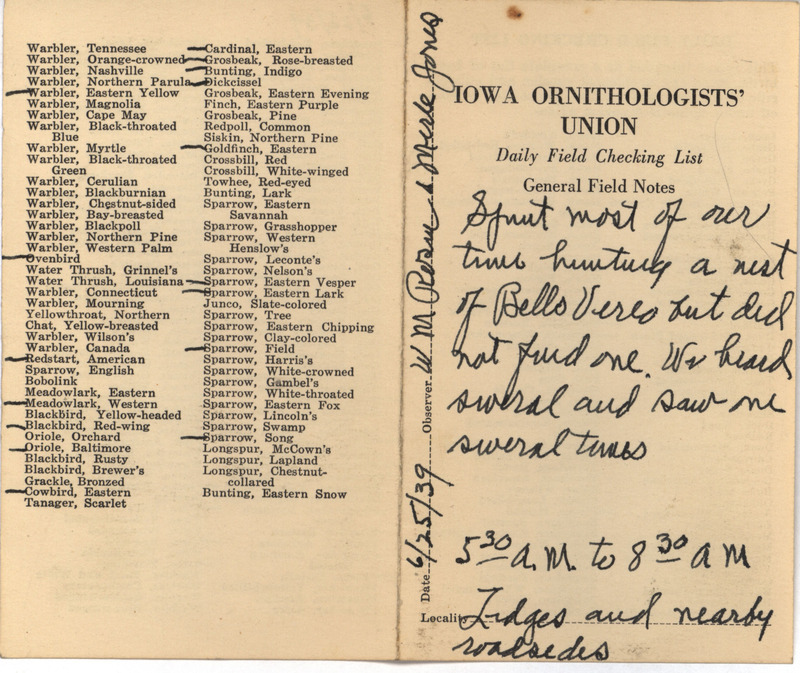 Warbler, Tennessee
Warbler, Orange-crowned
Warbler, Nashville
Warbler, Northern Parula
Warbler, Eastern Yellow
Warbler, Magnolia
Warbler, Cape May
Warbler, Black-throated
Blue
Warbler, Myrtle
Warbler, Black-throated
Green
Warbler, Cerulian
Warbler, Blackburnian
Warbler, Chestnut-sided
Warbler, Bay-breasted
Warbler, Blackpoll
Warbler, Northern Pine
Warbler, Western Palm
Ovenbird
Water Thrush, Grinnel's
Water Thrush, Louisiana
Warbler, Connecticut
Warbler, Mourning
Yellowthroat, Northern
Chat, Yellow-breasted
Warbler, Wilson's
Warbler, Canada
Redstart, American
Sparrow, English
Bobolink
Meadowlark, Eastern
Meadowlark, Western
Blackbird, Yellow-headed
Blackbird, Red-wing
Oriole, Orchard
Oriole, Baltimore
Blackbird, Rusty
Blackbird, Brewer's
Grackle, Bronzed
Cowbird, Eastern
Tanager, Scarlet
Cardinal, Eastern
Grosbeak, Rose-breasted
Bunting, Indigo
Dickcissel
Grosbeak, Eastern Evening
Finch, Eastern Purple
Grosbeak, Pine
Redpoll, Common
Siskin, Northern Pine
Goldfinch, Eastern
Crossbill, Red
Crossbill, White-winged
Towhee, Red-eyed
Bunting, Lark
Sparrow, Eastern
Savannah
Sparrow, Grasshopper
Sparrow, Western
Henslow's
Sparrow, Leconte's
Sparrow, Nelson's
Sparrow, Eastern Vesper
Sparrow, Eastern Lark
Junco, Slate-colored
Sparrow, Tree
Sparrow, Eastern Chipping
Sparrow, Clay-colored
Sparrow, Field
Sparrow, Harris's
Sparrow, White-crowned
Sparrow, Gambel's
Sparrow, White-throated
Sparrow, Eastern Fox
Sparrow, Lincoln's
Sparrow, Swamp
Sparrow, Song
Longspur, McCown's
Longspur, Lapland
Longspur, Chestnut-
collared
Bunting, Eastern Snow
Date 6/25/39 Observer W. M. Rosen & Merle Jones
IOWA ORNITHOLOGISTS'
UNION
Daily Field Checking List
General Field Notes
Spent most of our
time hunting a nest
of Bells Vireo but did
not find one. We heard
several and saw one
several times
5 30 a.m. to 8 30 a m
Locality Ledges and nearby
roadsides